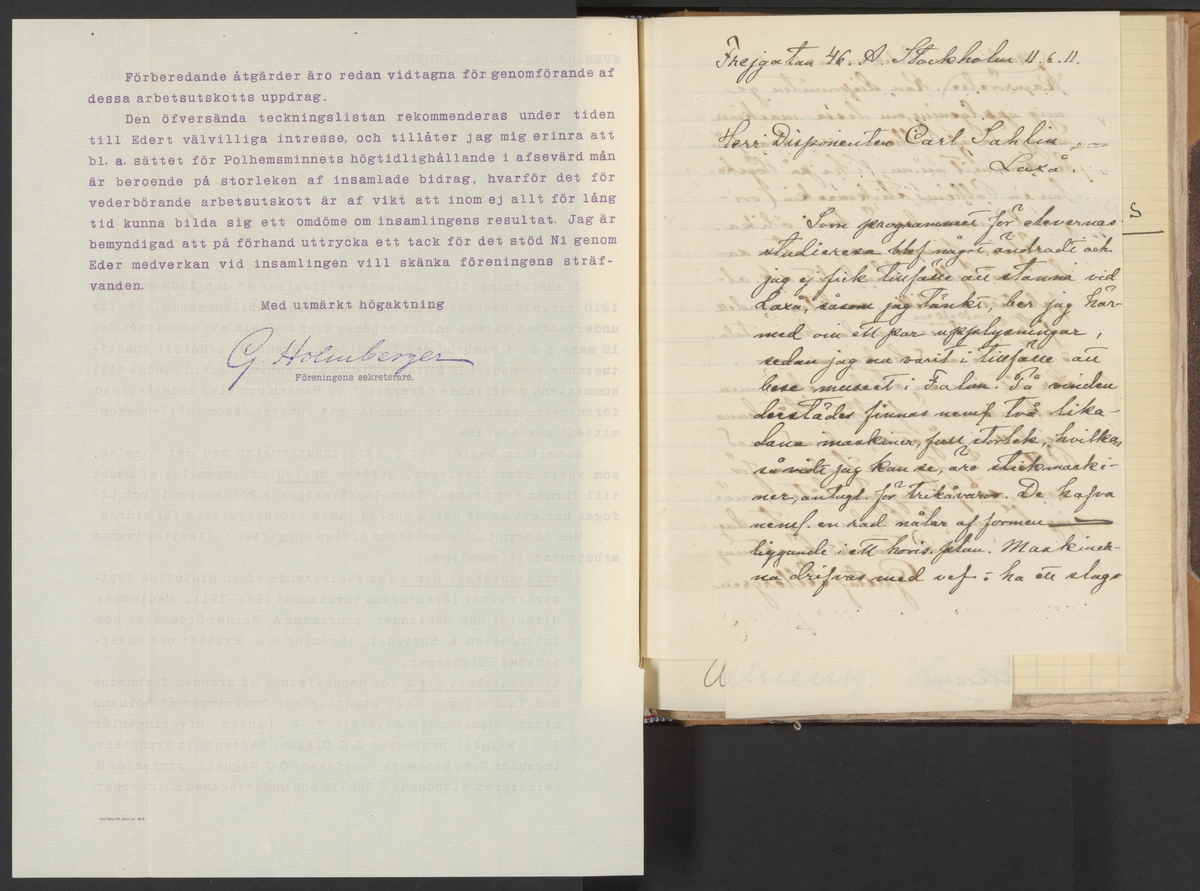 Förberedande åtgärder äro redan vidtagna för genomförande af
dessa arbetsutskotts uppdrag.
Den öfversända teckningslistan rekommenderas under tiden
till Edert välvilliga intresse, och tillåter jag mig erinra att
bl. a. sättet för Polhemsminnets högtidlighållande i afsevärd mån
är beroende på storleken af insamlade bidrag, hvarför det för
vederbörande arbetsutskott är af vikt att inom ej allt för lång
tid kunna bilda sig ett omdöme om insamlingens resultat. Jag är
bemyndigad att på förhand uttrycka ett tack för det stöd Ni genom
Eder medverkan vid insamlingen vill skänka föreningens sträf-
vanden.
Med utmärkt högaktning
G. Holmberger
Föreningens sekreterare.
Frejgatan 46. A. Stockholm 11.6.11.
Herr Disponenten Carl Sahlin
Laxå.
S
Som programmet för elevernas
studieresa blef något ändradt och
jag ej fick tillfälle att stanna vid
Laxå, såsom jag tänkt, ber jag här-
med om ett par upplysningar,
sedan jag nu varit i tillfälle att
bese museet i Falun. På vinden
derstädes finnas nemf. två lika-
dana maskiner, storlek, hvilka,
såvidt jag kan se, äro stickmaski-
ner, antagl. för trikåvaror. De hafva
nemf. en rad nålar af formen
liggande i ett horis. plan. Maskiner-
na drifvas med vef - ha ett slags